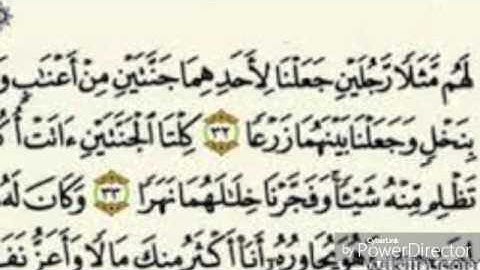 لَهُم مَّثَلًا رَّجُلَيْنِ جَعَلْنَا لِأَحَدِهِمَا جَنَّتَيْنِ مِنْ أَعْنَٰبٍ
بِنَخْلٍ وَجَعَلْنَا بَيْنَهُمَا زَرْعًا ٣٢ كِلْتَا ٱلْجَنَّتَيْنِ ءَاتَتْ
تَظْلِم مِّنْهُ شَيْـًٔا وَفَجَّرْنَا خِلَٰلَهُمَا نَهَرًا ٣٣ وَكَانَ لَهُ
يُحَاوِرُهُۥٓ أَنَا۠ أَكْثَرُ مِنكَ مَالًا وَأَعَزُّ
by CyberLink PowerDirector